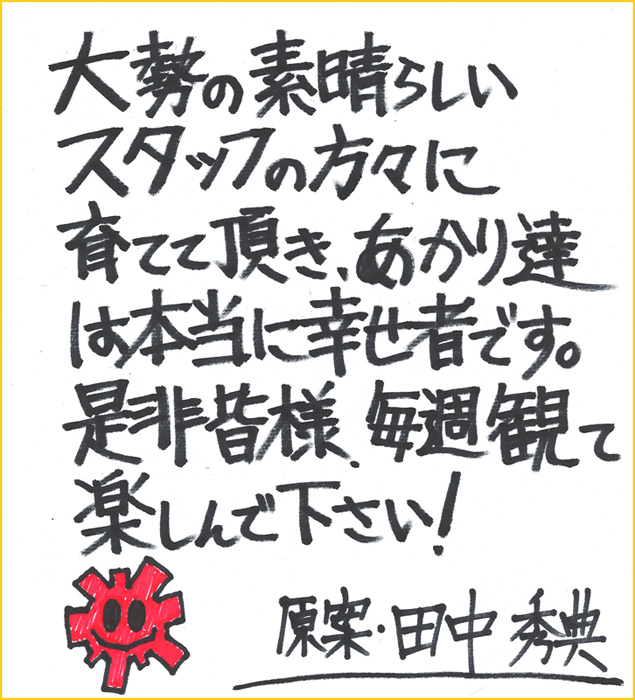 大勢の素晴らしい
スタッフの方々に
育てて頂き、あかり達
は本当に幸せ者です。
是非皆様、毎週観て
楽しんで下さい!
原案・田中秀典